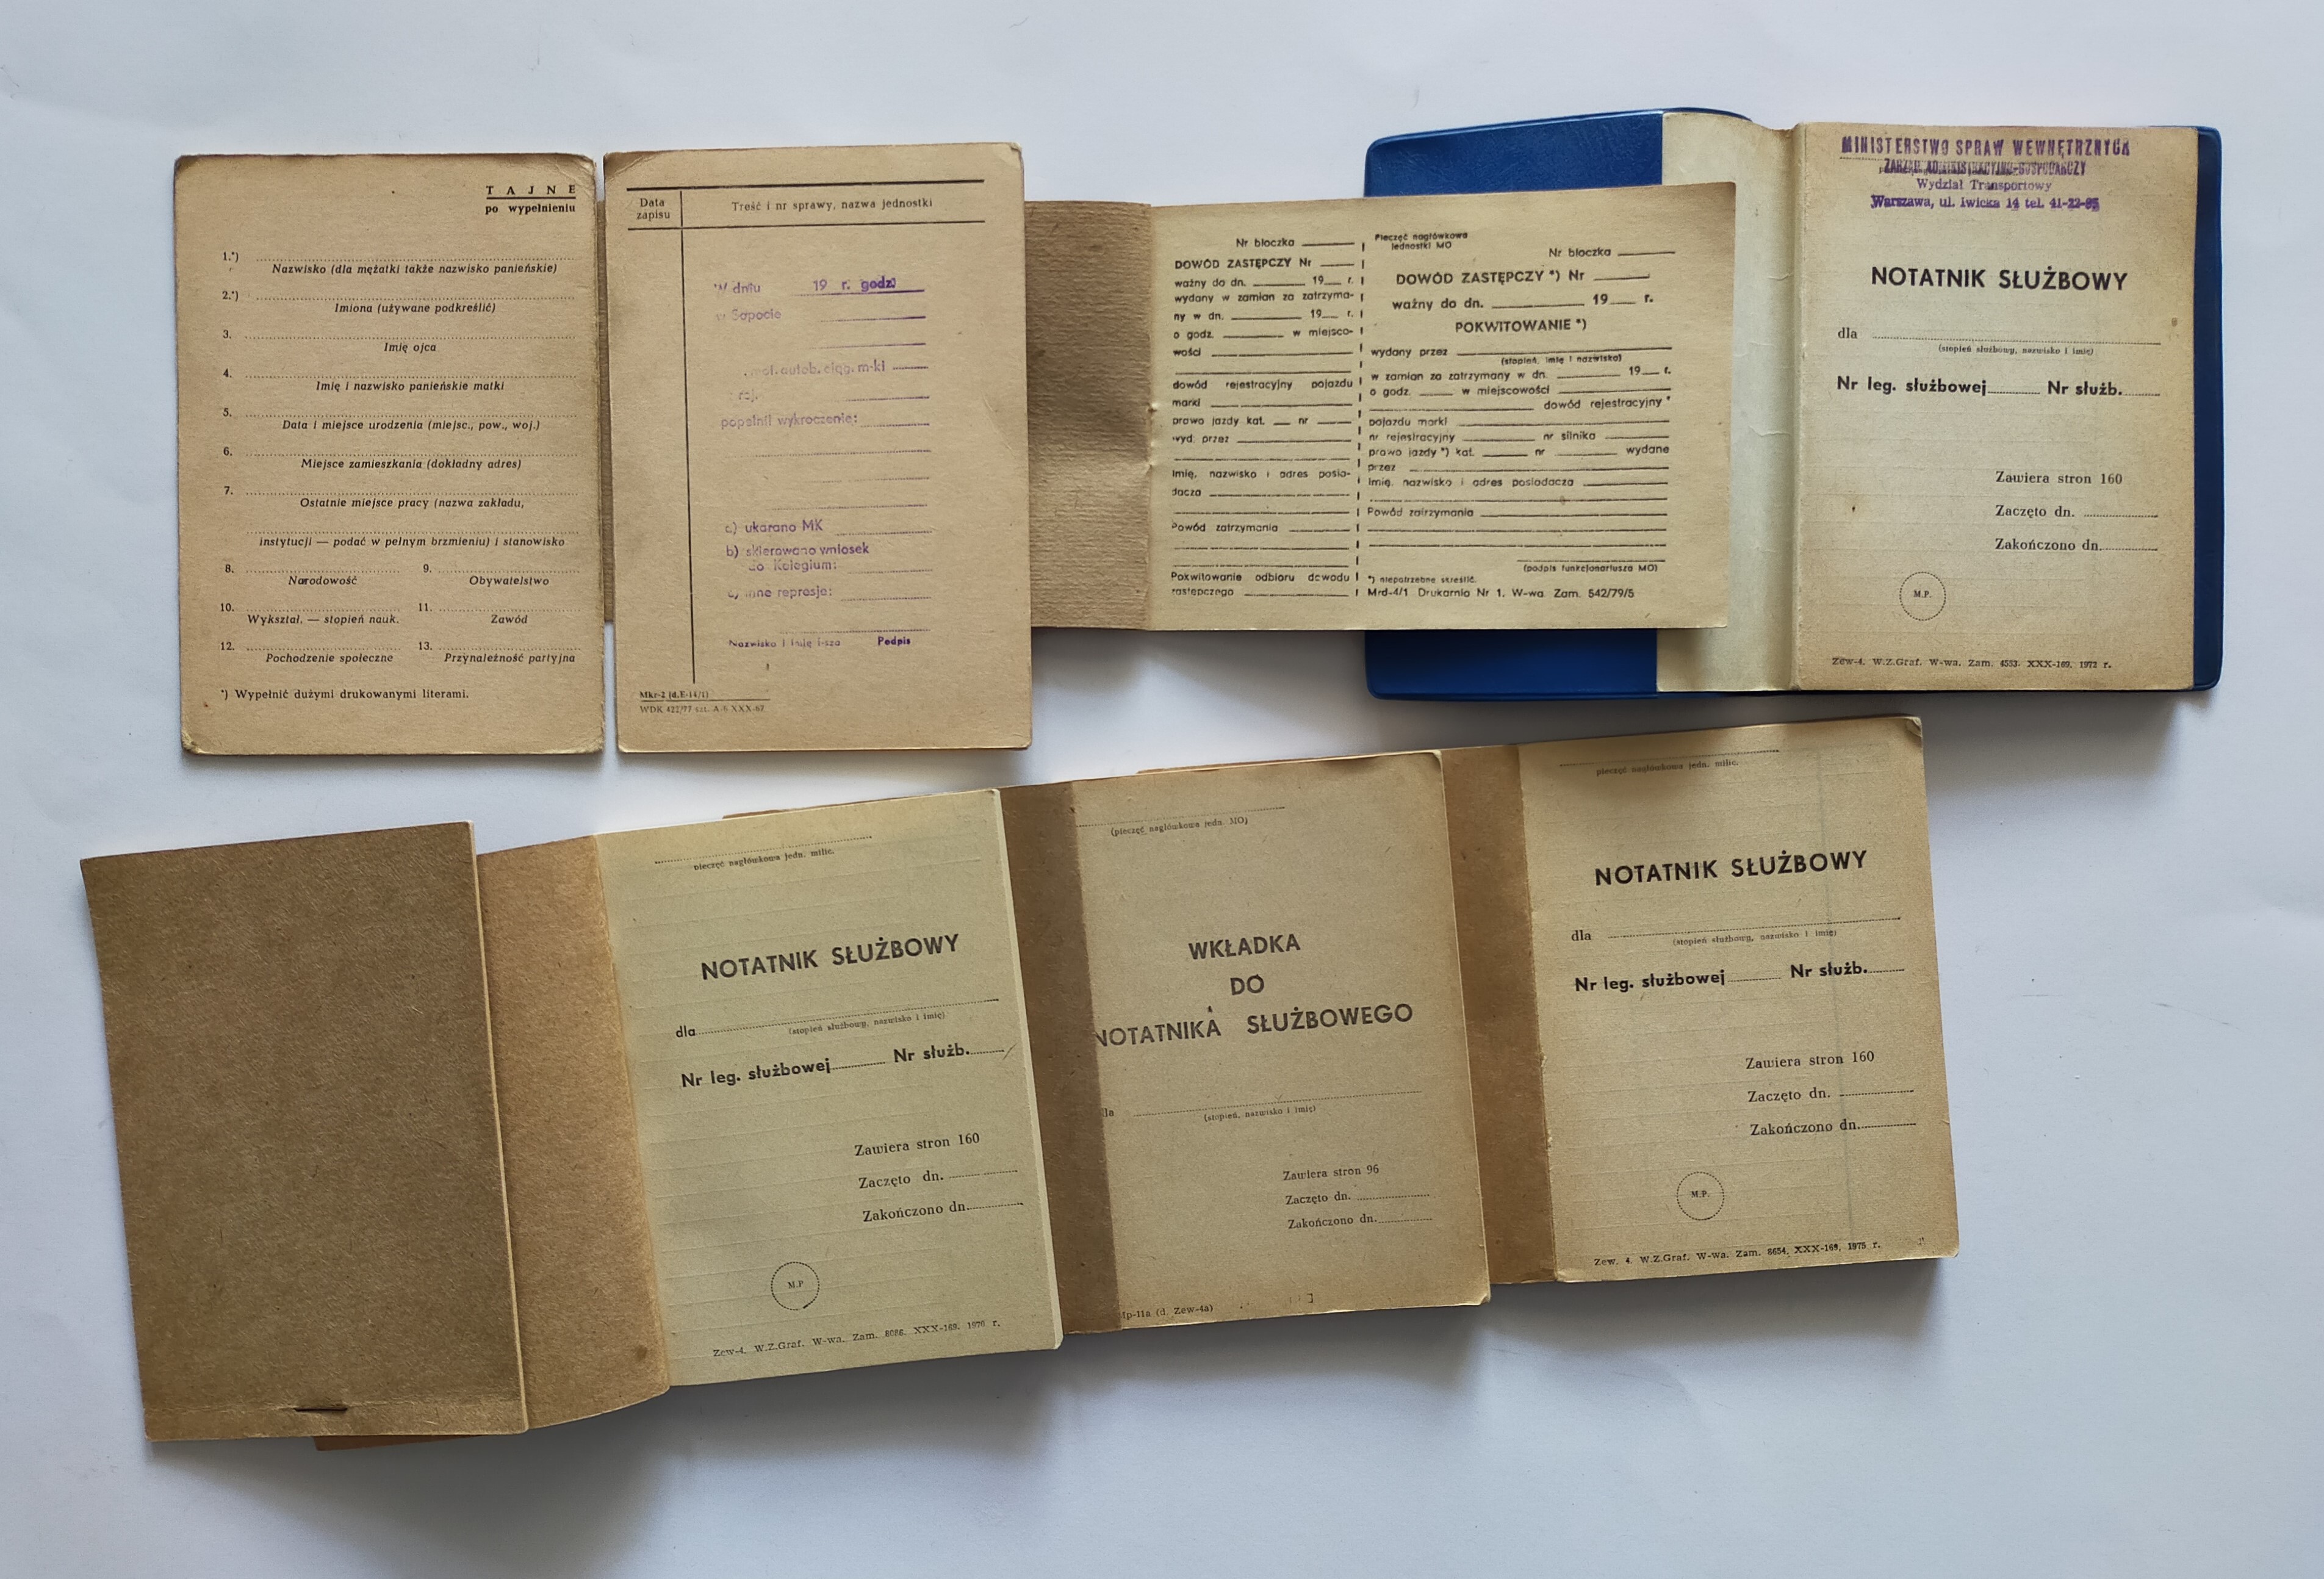 T A J N E
po wypełnieniu
1.*)
Nazwisko (dla mężatki także nazwisko panieńskie)
2.*)
Imiona (używane podkreślić)
3.
Imię ojca
4.
Imię i nazwisko panieńskie matki
5.
Data i miejsce urodzenia (miejsc., pow., woj.)
6.
Miejsce zamieszkania (dokładny adres)
7.
Ostatnie miejsce pracy (nazwa zakładu,
instytucji — podać w pełnym brzmieniu) i stanowisko
8. 9.
Narodowość Obywatelstwo
10. 11.
Wykształ. — stopień nauk. Zawód
12. 13.
Pochodzenie społeczne Przynależność partyjna
*) Wypełnić dużymi drukowanymi literami.
Data zapisu
Treść i nr sprawy, nazwa jednostki
W dniu 19 r. godz.
w Sopocie
autob. ciąg. m-ki
rej.
popełnił wykroczenie:
ukarano MK
b) skierowano wniosek
do Kolegium:
c) inne represje:
Nazwisko i imię Podpis
Mkr-2 (d.E-14/1)
WDK 422/77 szt. A-6 XXX-67
Nr bloczka
DOWÓD ZASTĘPCZY Nr
ważny do dn. 19 r.
wydany w zamian za zatrzyma-
ny w dn. 19 r.
o godz. w miejsco-
wości
dowód rejestracyjny pojazdu
marki
prawo jazdy kat. nr
wyd. przez
Imię, nazwisko i adres posia-
dacza
Powód zatrzymania
Pokwitowanie odbioru dowodu
zastępczego
Pieczęć nagłówkowa
jednostki MO
Nr bloczka
DOWÓD ZASTĘPCZY *) Nr
ważny do dn. 19 r.
POKWITOWANIE *)
wydany przez
(stopień, imię i nazwisko)
w zamian za zatrzymany w dn. 19 r.
o godz. w miejscowości
dowód rejestracyjny *
pojazdu marki
nr rejestracyjny nr silnika
prawo jazdy *) kat. nr wydane
przez
Imię, nazwisko i adres posiadacza
Powód zatrzymania
(podpis funkcjonariusza MO)
*) niepotrzebne skreślić.
Mrd-4/1 Drukarnia Nr 1, W-wa Zam. 542/79/5
MINISTERSTWO SPRAW WEWNĘTRZNYCH
ZARZĄD ADMINISTRACYJNO-GOSPODARCZY
Wydział Transportowy
Warszawa, ul. Iwicka 14 tel. 41-22-95
NOTATNIK SŁUŻBOWY
dla
(stopień służbowy, nazwisko i imię)
Nr leg. służbowej Nr służb.
Zawiera stron 160
Zaczęto dn.
Zakończono dn.
M.P.
Zew-4. W.Z.Graf. W-wa. Zam. 4553. XXX-169, 1972 r.
pieczęć nagłówkowa jedn. milic.
NOTATNIK SŁUŻBOWY
dla
(stopień służbowy, nazwisko i imię)
Nr leg. służbowej Nr służb.
Zawiera stron 160
Zaczęto dn.
Zakończono dn.
M.P
Zew-4. W.Z.Graf. W-wa. Zam. 8086. XXX-169. 1970 r.
(pieczęć nagłówkowa jedn. MO)
WKŁADKA
DO
NOTATNIKA SŁUŻBOWEGO
dla
(stopień, nazwisko i imię)
Zawiera stron 96
Zaczęto dn.
Zakończono dn.
Mp-11a (d. Zew-4a)
pieczęć nagłówkowa jedn. milic.
NOTATNIK SŁUŻBOWY
dla
(stopień służbowy, nazwisko i imię)
Nr leg. służbowej Nr służb.
Zawiera stron 160
Zaczęto dn.
Zakończono dn.
M.P.
Zew. 4. W.Z.Graf. W-wa. Zam. 8654, XXX-169, 1975 r.